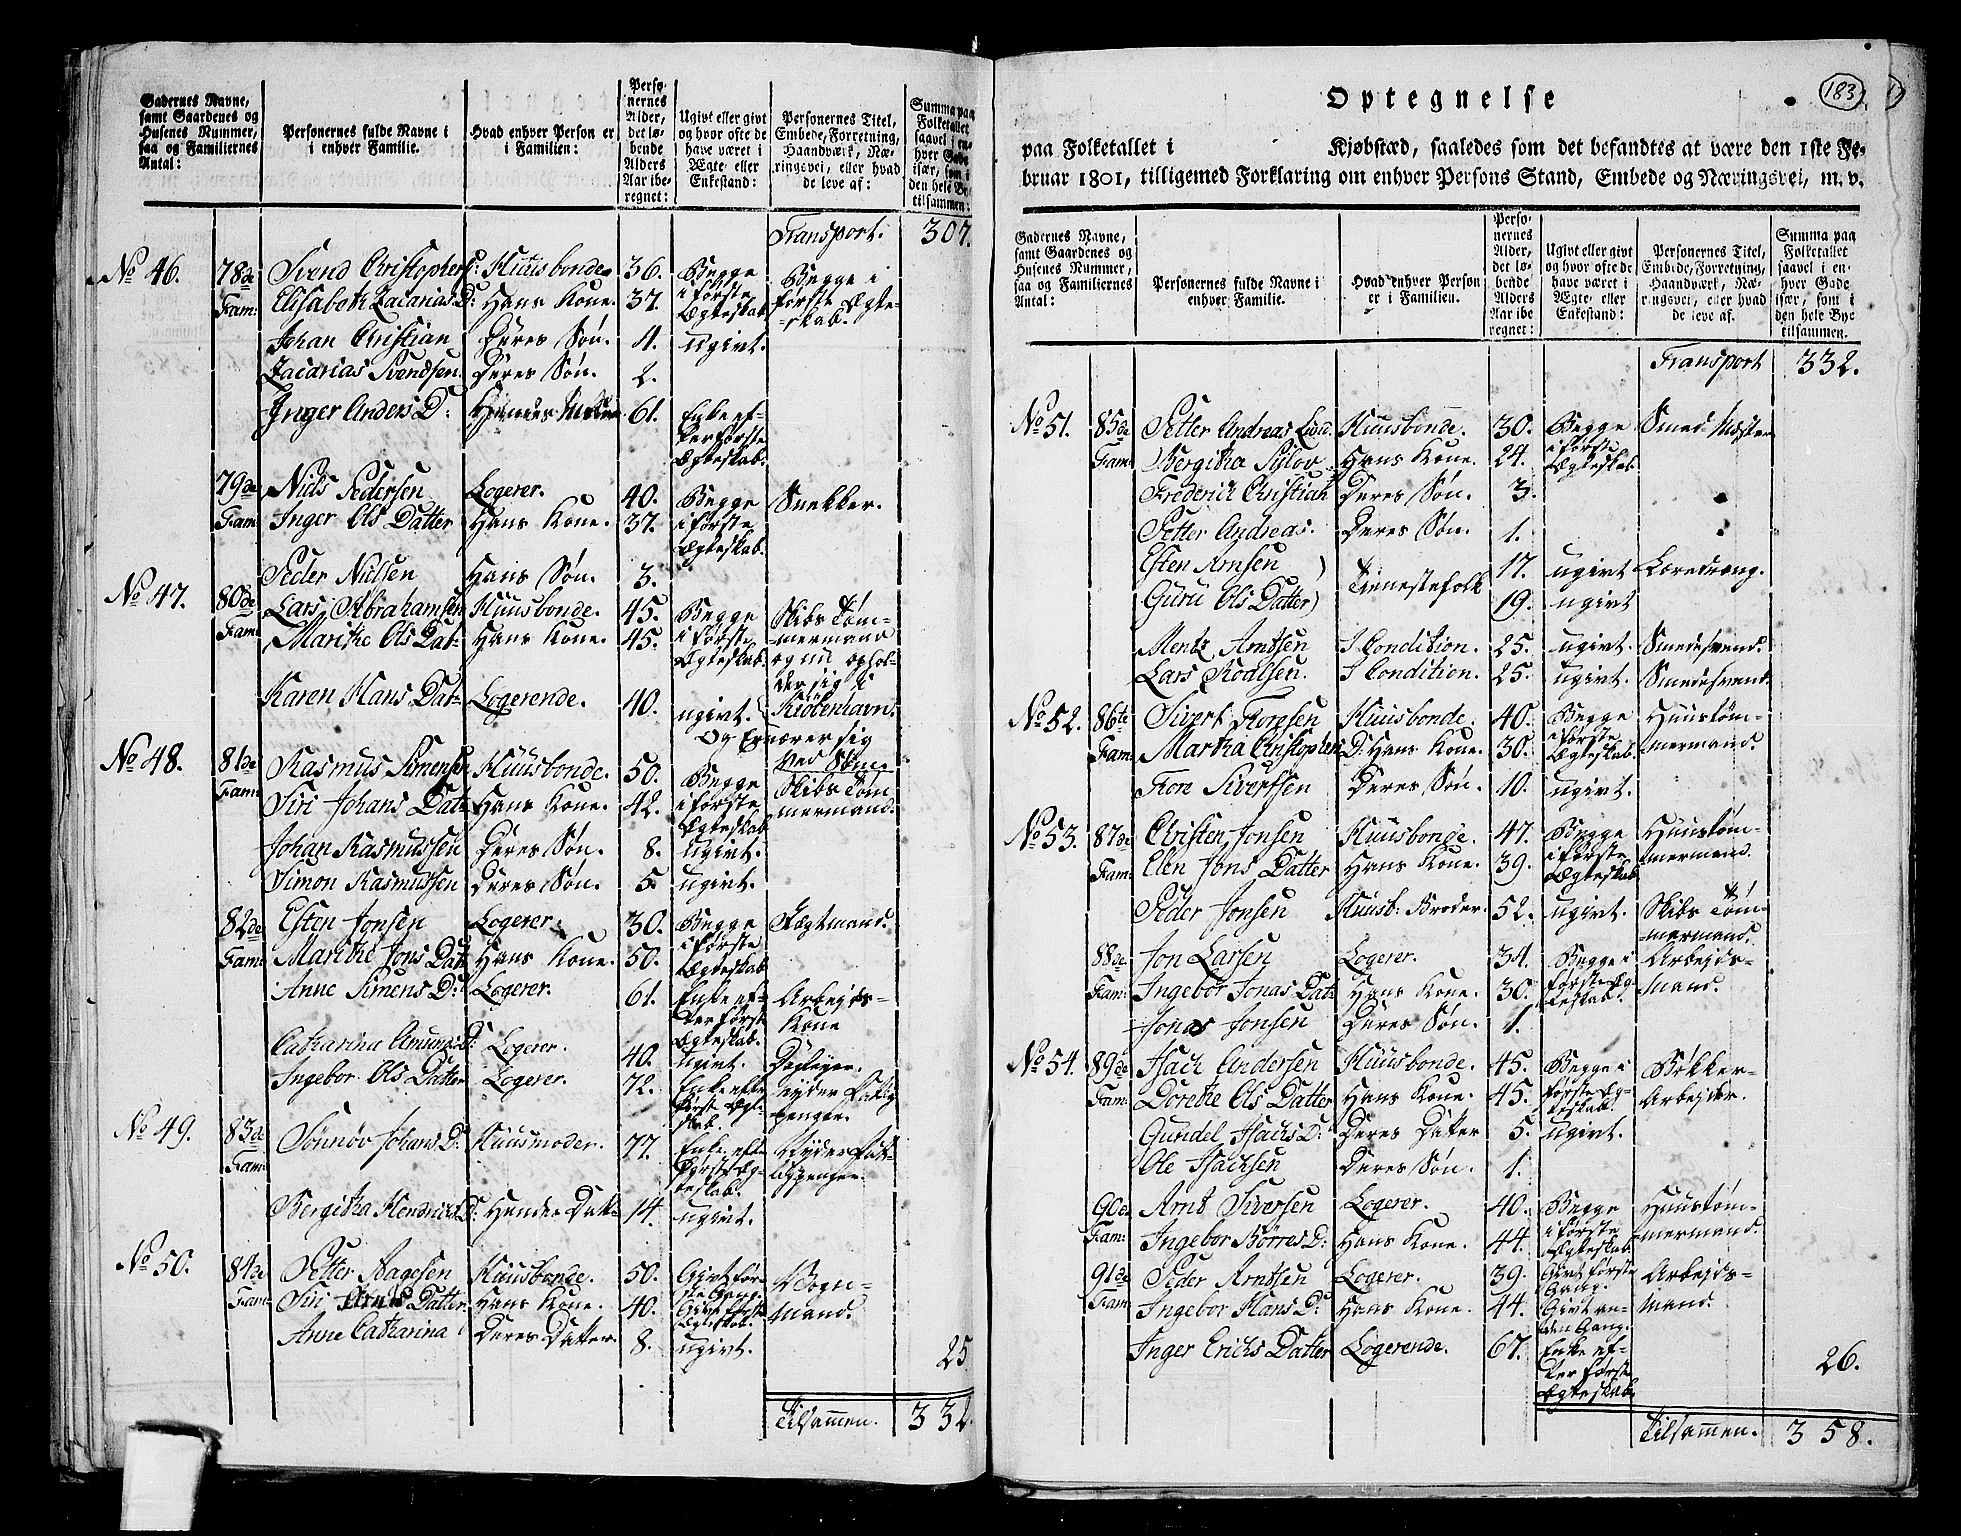 Gadernes Navne, samt Gaardenes og Husenes Nummer, saa og Familiernes Antal:
Personernes fulde Navne i enhver Familie.
Hvad enhver Person er i Familien:
Personernes Alder, det løbende Alders Aar iberegnet:
Ugivt eller givt og hvor ofte de have været i Ægte- eller Enkestand:
Personernes Titel, Embede, Forretning, Haandværk, Næringsvei, eller hvad de leve af:
Summa paa Folketallet saavel i enhver Gade især, som i den hele By tilsammen:
Transport. 307.
No 46. 78de Fam: Svend Christophers: Huusbonde 36. Begge i første Ægteskab Begge i første Ægteskab.
Elisabeth Zacarias D: Hans Kone 37.
Johan Christian Deres Søn. 4. ugivt.
Zacarias Svendsen. Deres Søn. 2.
Inger Anders D: 61. Enke efter første Ægteskab.
79de Fam: Niels Pedersen Logerer. 40. Begge i første Ægteskab. Snekker.
Inger Ols Datter Hans Kone. 37.
Peder Nielsen Hans Søn. 3.
No 47. 80de Fam: Lars Abrahamsen Huusbonde. 45. Begge i første Ægteskab. Skibs Tømmermand og nu opholder sig i Kiøbenhavn.
Marithe Ols Dat: Hans Kone. 45.
Karen Hans Dat: Logerende. 40. ugivt. Og Ernærer sig ved Søm
No 48. 81de Fam: Rasmus Simensen Huusbonde. 50. Begge i første Ægteskab Skibs Tømmermand.
Siri Johans Dat: Hans Kone. 42.
Johan Rasmussen Deres Søn. 8. ugivt.
Simon Rasmussen Deres Søn. 5. ugivt.
82de Fam: Esten Jonsen Logerer. 30. Begge i første Ægteskab Jægtmand.
Marithe Jons Dat: Hans Kone. 50.
Anne Simens D: Logerer. 61. Enke efter første Ægteskab. Arbejds-Kone
Catharina Amunds D: Logerer. 40. ugivt.
Ingebor Ols Datter Logerer. 72. Enke efter første Ægteskab. nyder Fattig penge.
No 49. 83de Fam: Sønnøv Johans D: Huusmoder. 77. Enke efter første Ægteskab. Nyder Fattigpenge.
Bergitha Hendrichs D: Hendes Datter 14. ugivt.
No 50. 84de Fam: Petter Aagesen Huusbonde. 50. Givt første Gang. Vognmand.
Siri Datter Hans Kone. 40. Givt første Ægteskab.
Anne Catharina Deres Datter. 8. ugivt.
25
Tilsammen. 332.
183
Optegnelse
paa Folketallet i Kjøbstæd, saaledes som det befandtes at være den 1ste Fe-
bruar 1801, tilligemed Forklaring om enhver Persons Stand, Embede og Næringsvei, m. v.
Gadernes Navne, samt Gaardenes og Husenes Nummer, saa og Familiernes Antal:
Personernes fulde Navne i enhver Familie.
Hvad enhver Person er i Familien.
Personernes Alder, det løbende Alders Aar iberegnet:
Ugivt eller givt og hvor ofte de have været i Ægte- eller Enkestand:
Personernes Titel, Embede, Forretning, Haandværk, Næringsvei, eller hvad de leve af.
Summa paa Folketallet saavel i enhver Gade især, som i den hele Bye tilsammen.
Transport 332.
No 51. 85de Fam: Petter Andreas Lund. Huusbonde. 30. Begge i første Ægteskab Smed-Mester
Bergitha Sylov Hans Kone. 24.
Frederich Christian Deres Søn. 3.
Petter Andreas. Deres Søn. 1.
Esten Arnsen Tienestefolk 17. ugivt Læredreng.
Guru Ols Datter 19. ugivt
Mentz Arntsen I Condition. 25. ugivt. Smedesvend.
Lars Roalsen. I Condition. 25. ugivt. Smedesvend.
No 52. 86te Fam: Sivert Torgsen Huusbonde. 40. Begge i første Ægteskab. Huustømmermand.
Martha Christophers D: Hans Kone. 30.
Tron Sivertsen Deres Søn. 10. ugivt.
No 53. 87de Fam: Christen Jonsen Huusbonde. 47. Begge i første Ægteskab Huustømmermand.
Elen Jons Datter Hans Kone. 39.
Peder Jonsen Huusb: Broder. 52. ugivt. Skibs Tømmermand.
88de Fam: Jon Larsen Logerer. 34. Begge i første Ægteskab. Arbejds-Mand.
Ingebor Jonas Dat: Hans Kone. 30.
Jonas Jonsen Deres Søn. 1.
No 54. 89de Fam: Isach Andersen Huusbonde. 45. Begge i første Ægteskab. Bøkker-Arbejder.
Dorethe Ols Datter Hans Kone. 45.
Gundel Isachs D: Deres Datter 5. ugivt.
Ole Isachsen Deres Søn. 1.
90de Fam: Arnt Siversen Logerer. 40. Begge i første Ægteskab. Huustømmermand.
Ingebor Børres D: Hans Kone. 44.
91de Fam: Peder Arntsen Logerer. 39. Givt første Gang. Arbejds-Mand.
Ingebor Hans D: Hans Kone. 44. Givt anden Gang.
Inger Erichs Datter Logerende. 67. Enke efter første Ægteskab.
26.
Tilsammen. 358.